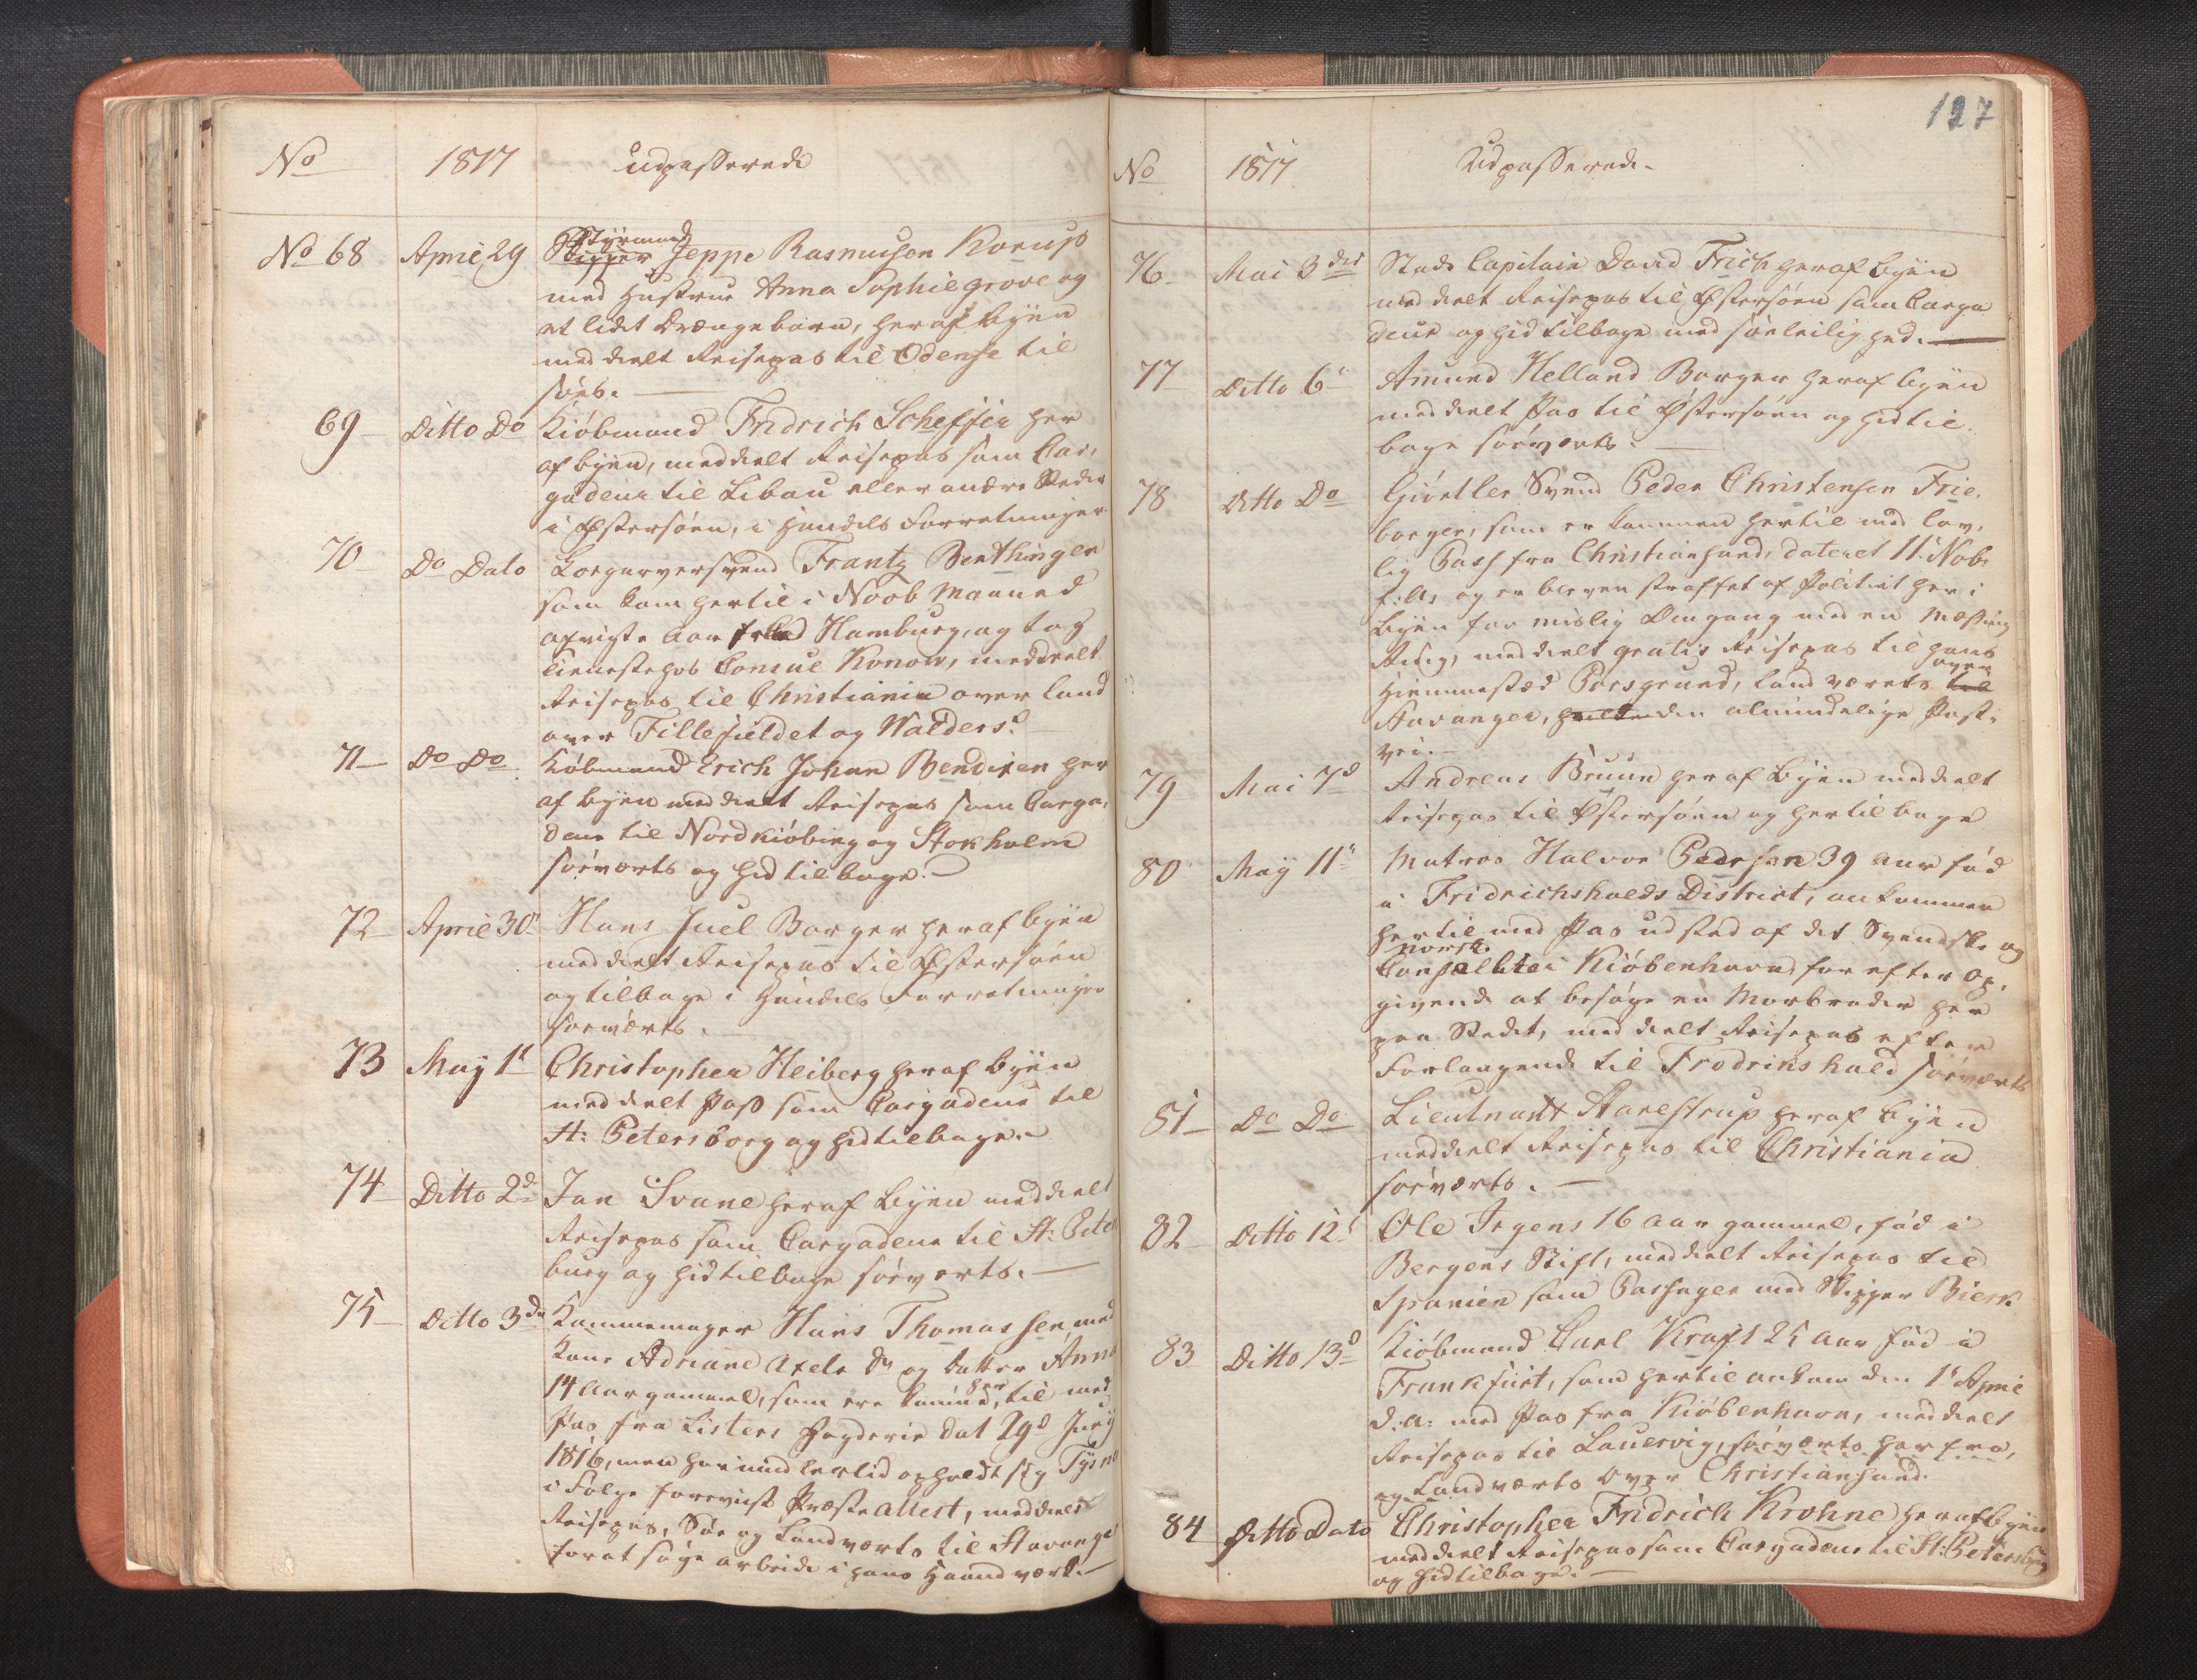 No 1817 udpasserede
No 68 April 29 Skipper Styrmand Jeppe Rasmusen Korup
med Hustrue Anna Sophie grove og
et lidet Drængebarn, heraf byen
meddeelt Reisepas til Odense til
søes.
69 Ditto Do Kiöbmand Fridrich Scheffer her
af byen, meddeelt Reisepas som Car,
gadeur til Libau eller andre Stæder
i Østersöen, i Handels Forretninger
70 Do Dato Lorgarversvend Frantz Benthinger
som kom hertil i Novb Maaned
afvigte Aar fra Hamburg, og tog
Tieneste hos Consul Konow, meddeelt
Reisepas til Christiania over land
over Fillefieldet og Walders.
71 Do Do Kiöbmand Erich Johan Bendixen her
af byen meddeelt Reisepas som Carga,
deur til Nordkiöbing og Stokholm
söeværts og hid tilbage.
72 April 30 Hans Juel Borger heraf byen
meddeelt Reisepas til Østersöen
og tilbage i Handels Forretninger
soeværts.
73 May 1t Christopher Heiberg heraf byen
meddeelt Pass som Cargadeur til
St: Petersborg og hid tilbage.
74 Ditto 2d Jan Svane heraf Byen meddeelt
Reisepas som Cargadeur til St: Peters
burg og hid tilbage söeværts.
75 Ditto 3de Kammemager Hans Thomassen med
Kone Adriane Axels Dr og Datter Anna
14 Aar gammel, som ere kommed her til med
Pas fra Listers Fogderie dat 29d Juny
1816, men har imidlertid opholdt sig Tysnes
i Fölge foreviist Præste Attest, meddeelt
Reisepas, Söe og Landværts til Stavanger
for at söge arbeide i hans Haandværk.
127
No 1817 Udpasserede
76 Mai 3die Stads Capitain David Frich heraf byen
meddeelt Reisepas til Østersöen som Carga
deur og hid tilbage med söeleilighed.
77 Ditto 6te Amund Helland Borger heraf byen
meddeelt Pas til Østersöen og hid til,
bage söeværts.
78 Ditto Do Giörtler Svend Peder Christensen Frie,
borger, som er kommen hertil med lov,
lig Pass fra Christiansand, dateret 11. Nob
f: A, og er bleven straffet af Politiet her i
Byen for mislig Omgang med en Messing
meddeelt gratis Reisepas til hans
Hiemmestæd Porsgrund, landværts til over
Stavanger, den almindelige Post,
vei.
79 Mai 7d Andreas Bruun heraf byen meddeelt
Reisepas til Østersöen og her tilbage
80 May 11te Matros Halvor Pedersen 39 Aar föd
i Fridrichshalds District, ankommen
hertil med Pas udsted af det Svendske og
norske Consulat i Kiöbenhavn for efter op,
givende at besöge en Morbroder her
paa Stedet, meddeelt Reisepas efter
Forlangende til Fredrikshald söeværts
81 Do Do Lieutnant Aarestrup heraf byen
meddeelt Reisepas til Christiania
söeværts.
82 Ditto 12t Ole Irgens 16 Aar gammel, föd i
Bergens Stift, meddeelt Reisepas til
Spanien som Passager med Skipper Bierk.
83 Ditto 13d Kiöbmand Carl Kraft 25 Aar föd i
Frankfurt, som hertil ankom den 1t April
d. A: med Pas fra Kiöbenhavn, meddeelt
Reisepas til Lauervig, söeværts herfra,
og Landværts over Christiansand.
84 Ditto Dato Christopher Fridrich Krohne heraf byen
meddeelt Reisepas som Cargadeur til St: Petersburg
og hid tilbage.